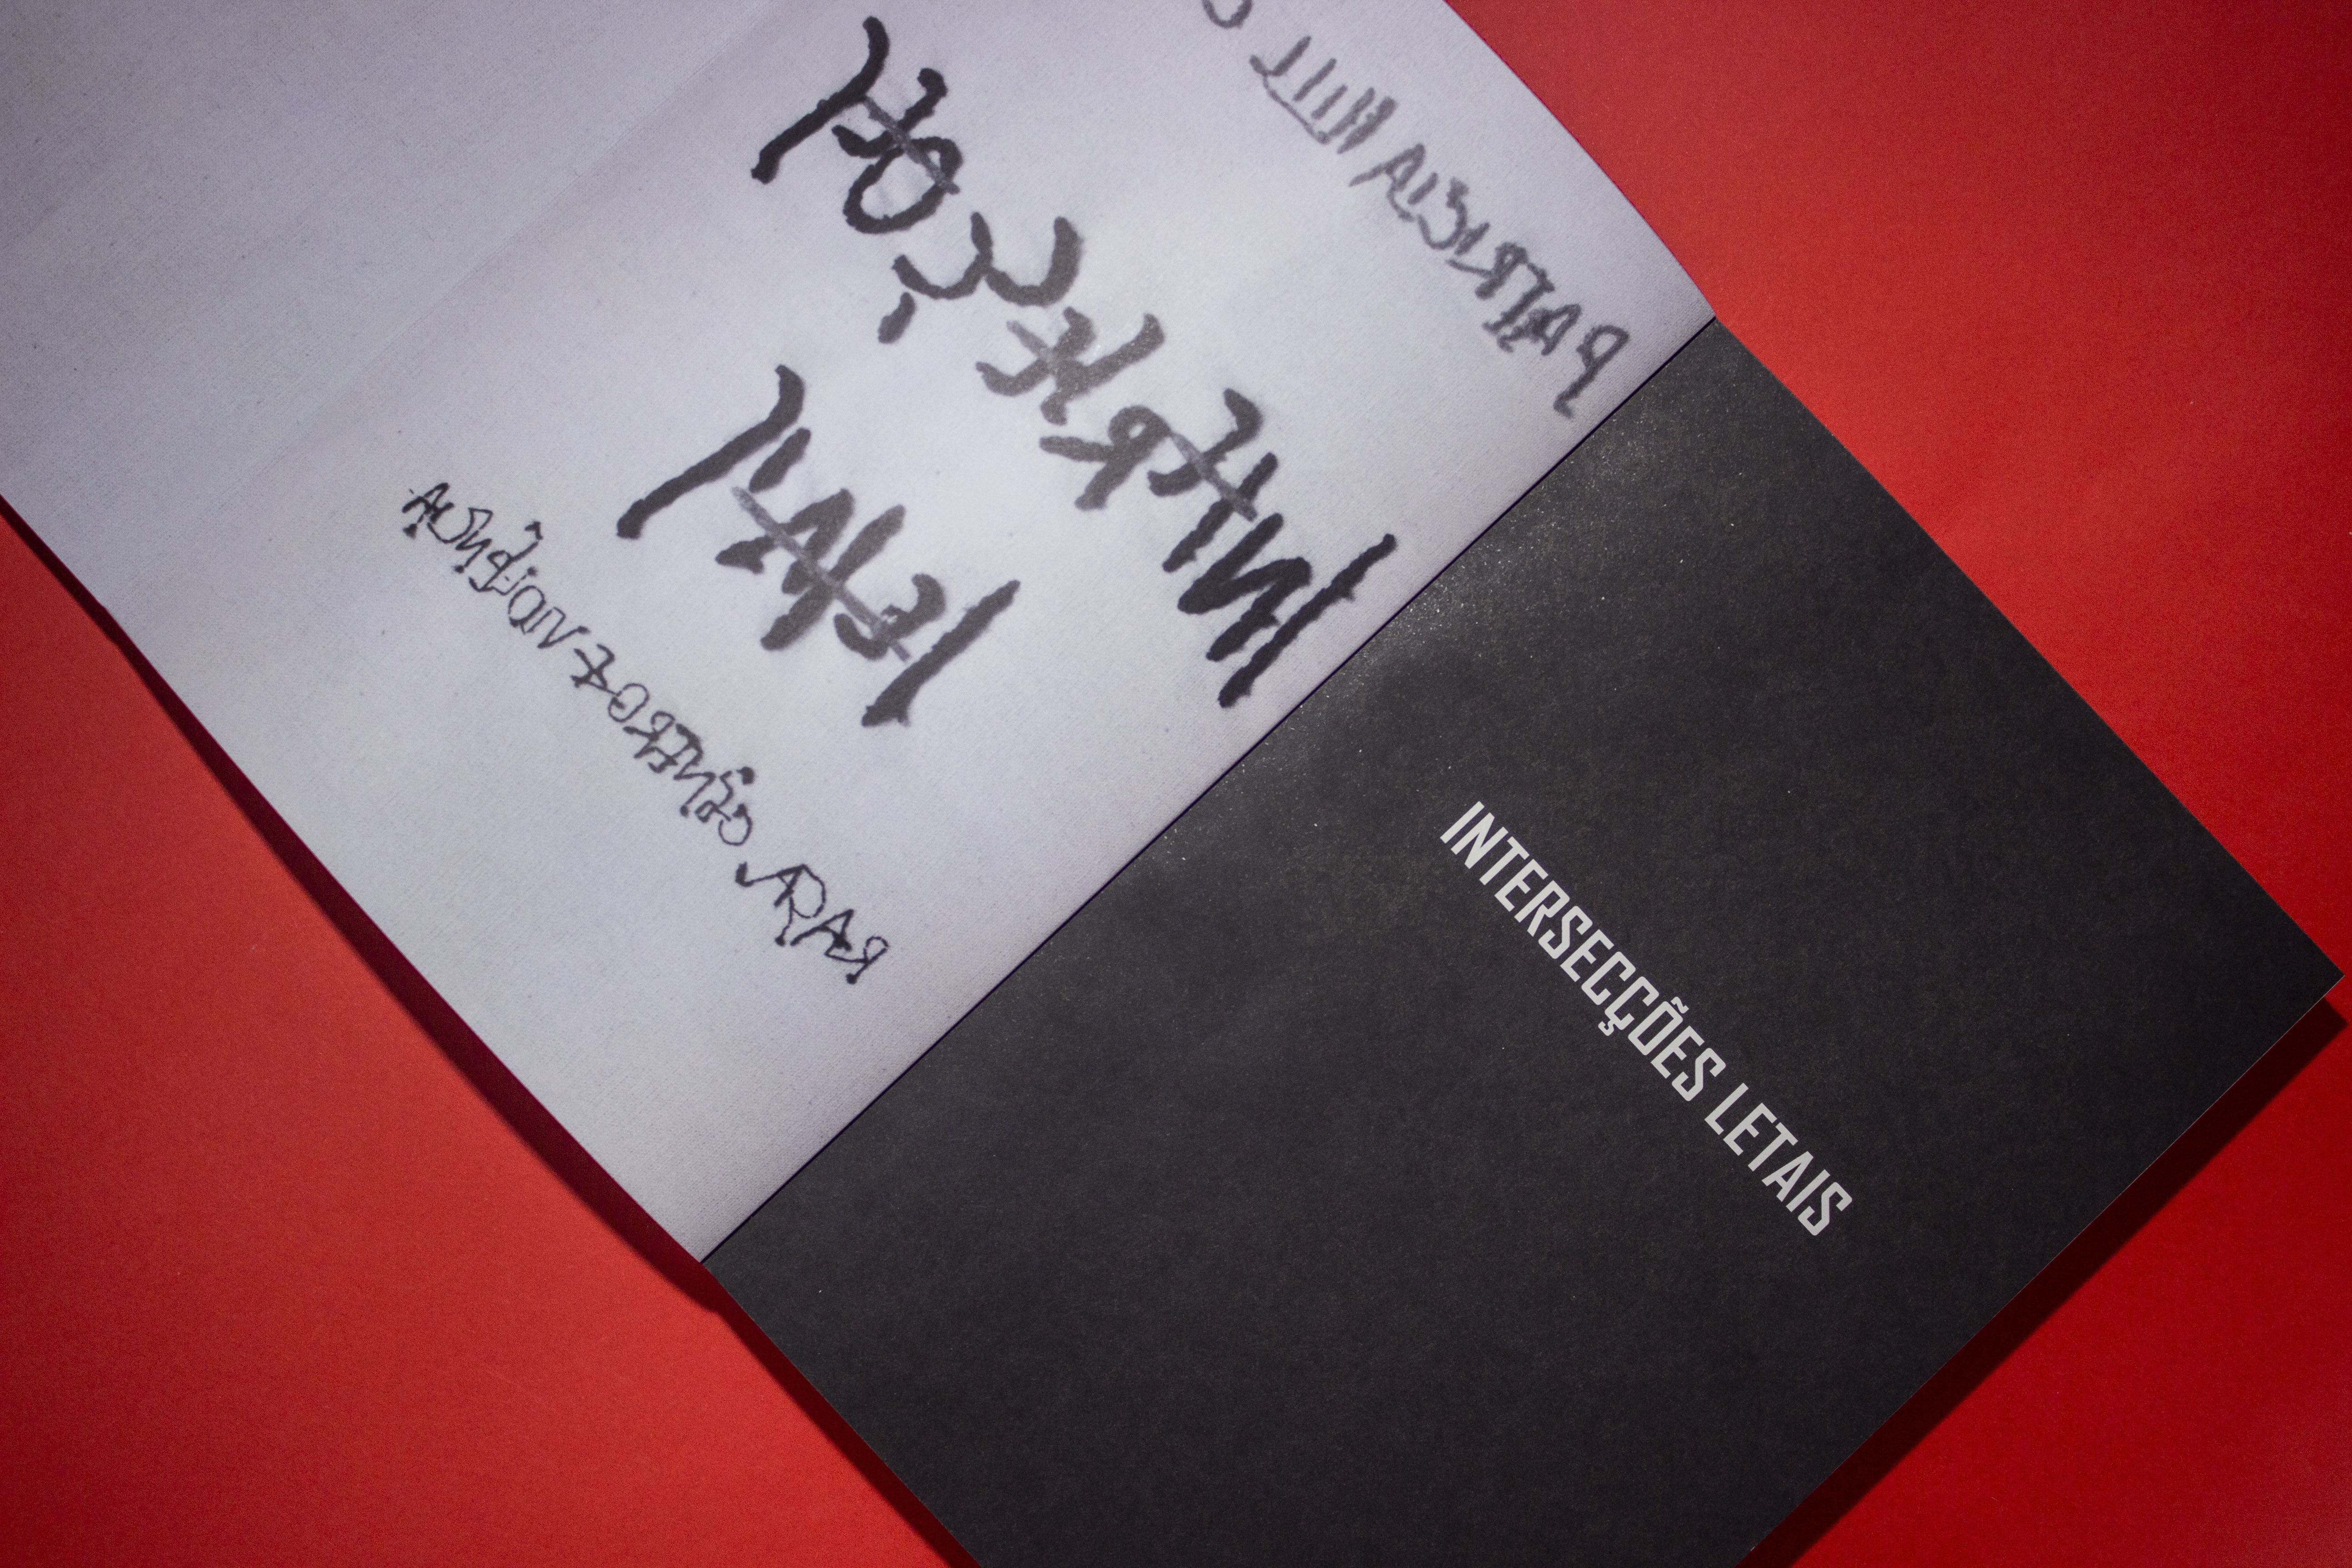 PATRICIA HILL
INTERSECÇÕES
LETAIS
RAÇA, GÊNERO E VIOLÊNCIA
INTERSECÇÕES LETAIS